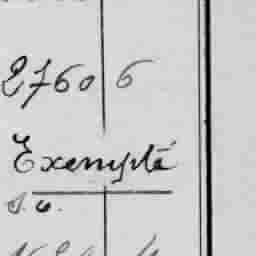 2760 6
Exempté
s.o.